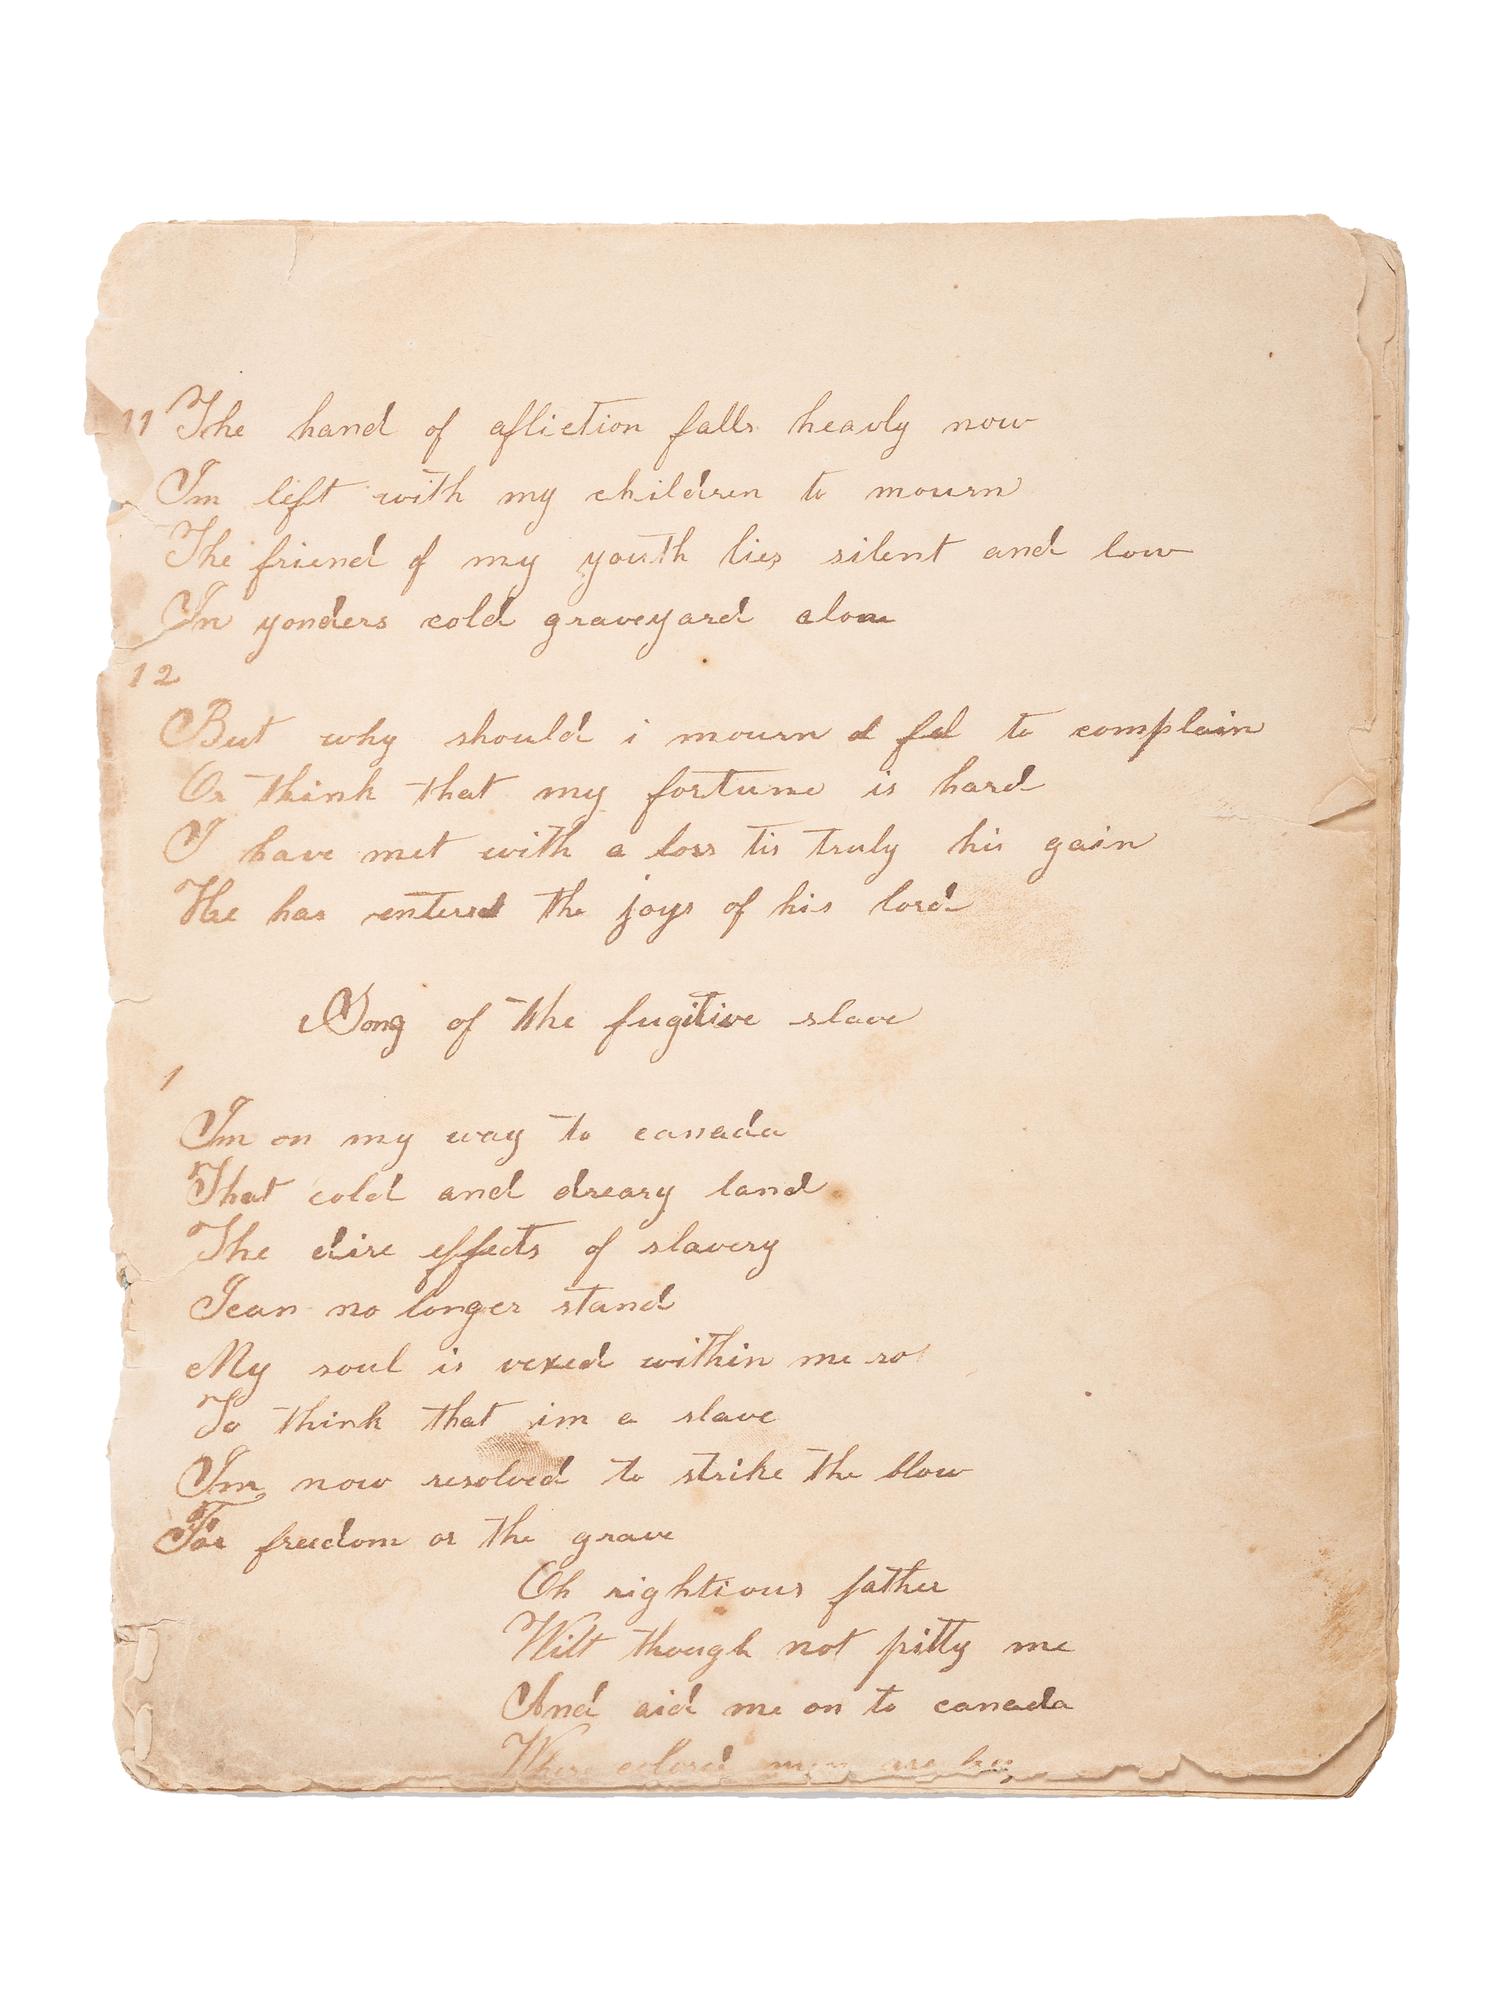 11 The hand of afliction falls heavly now
Im left with my children to mourn
The friend of my youth lies silent and low
In yonders cold graveyard alone
12
But why should i mourn d fel to complain
Or think that my fortune is hard
I have met with a loss tis truly his gain
He has entered the joys of his lord
Song of the fugitive slave
1
Im on my way to canada
That cold and dreary land
The dire effects of slavery
I can no longer stand
My soul is vexed within me so
To think that im a slave
Im now resolved to strike the blow
For freedom or the grave
Oh rightious father
Wilt though not pitty me
And aid me on to canada
Where colored men are